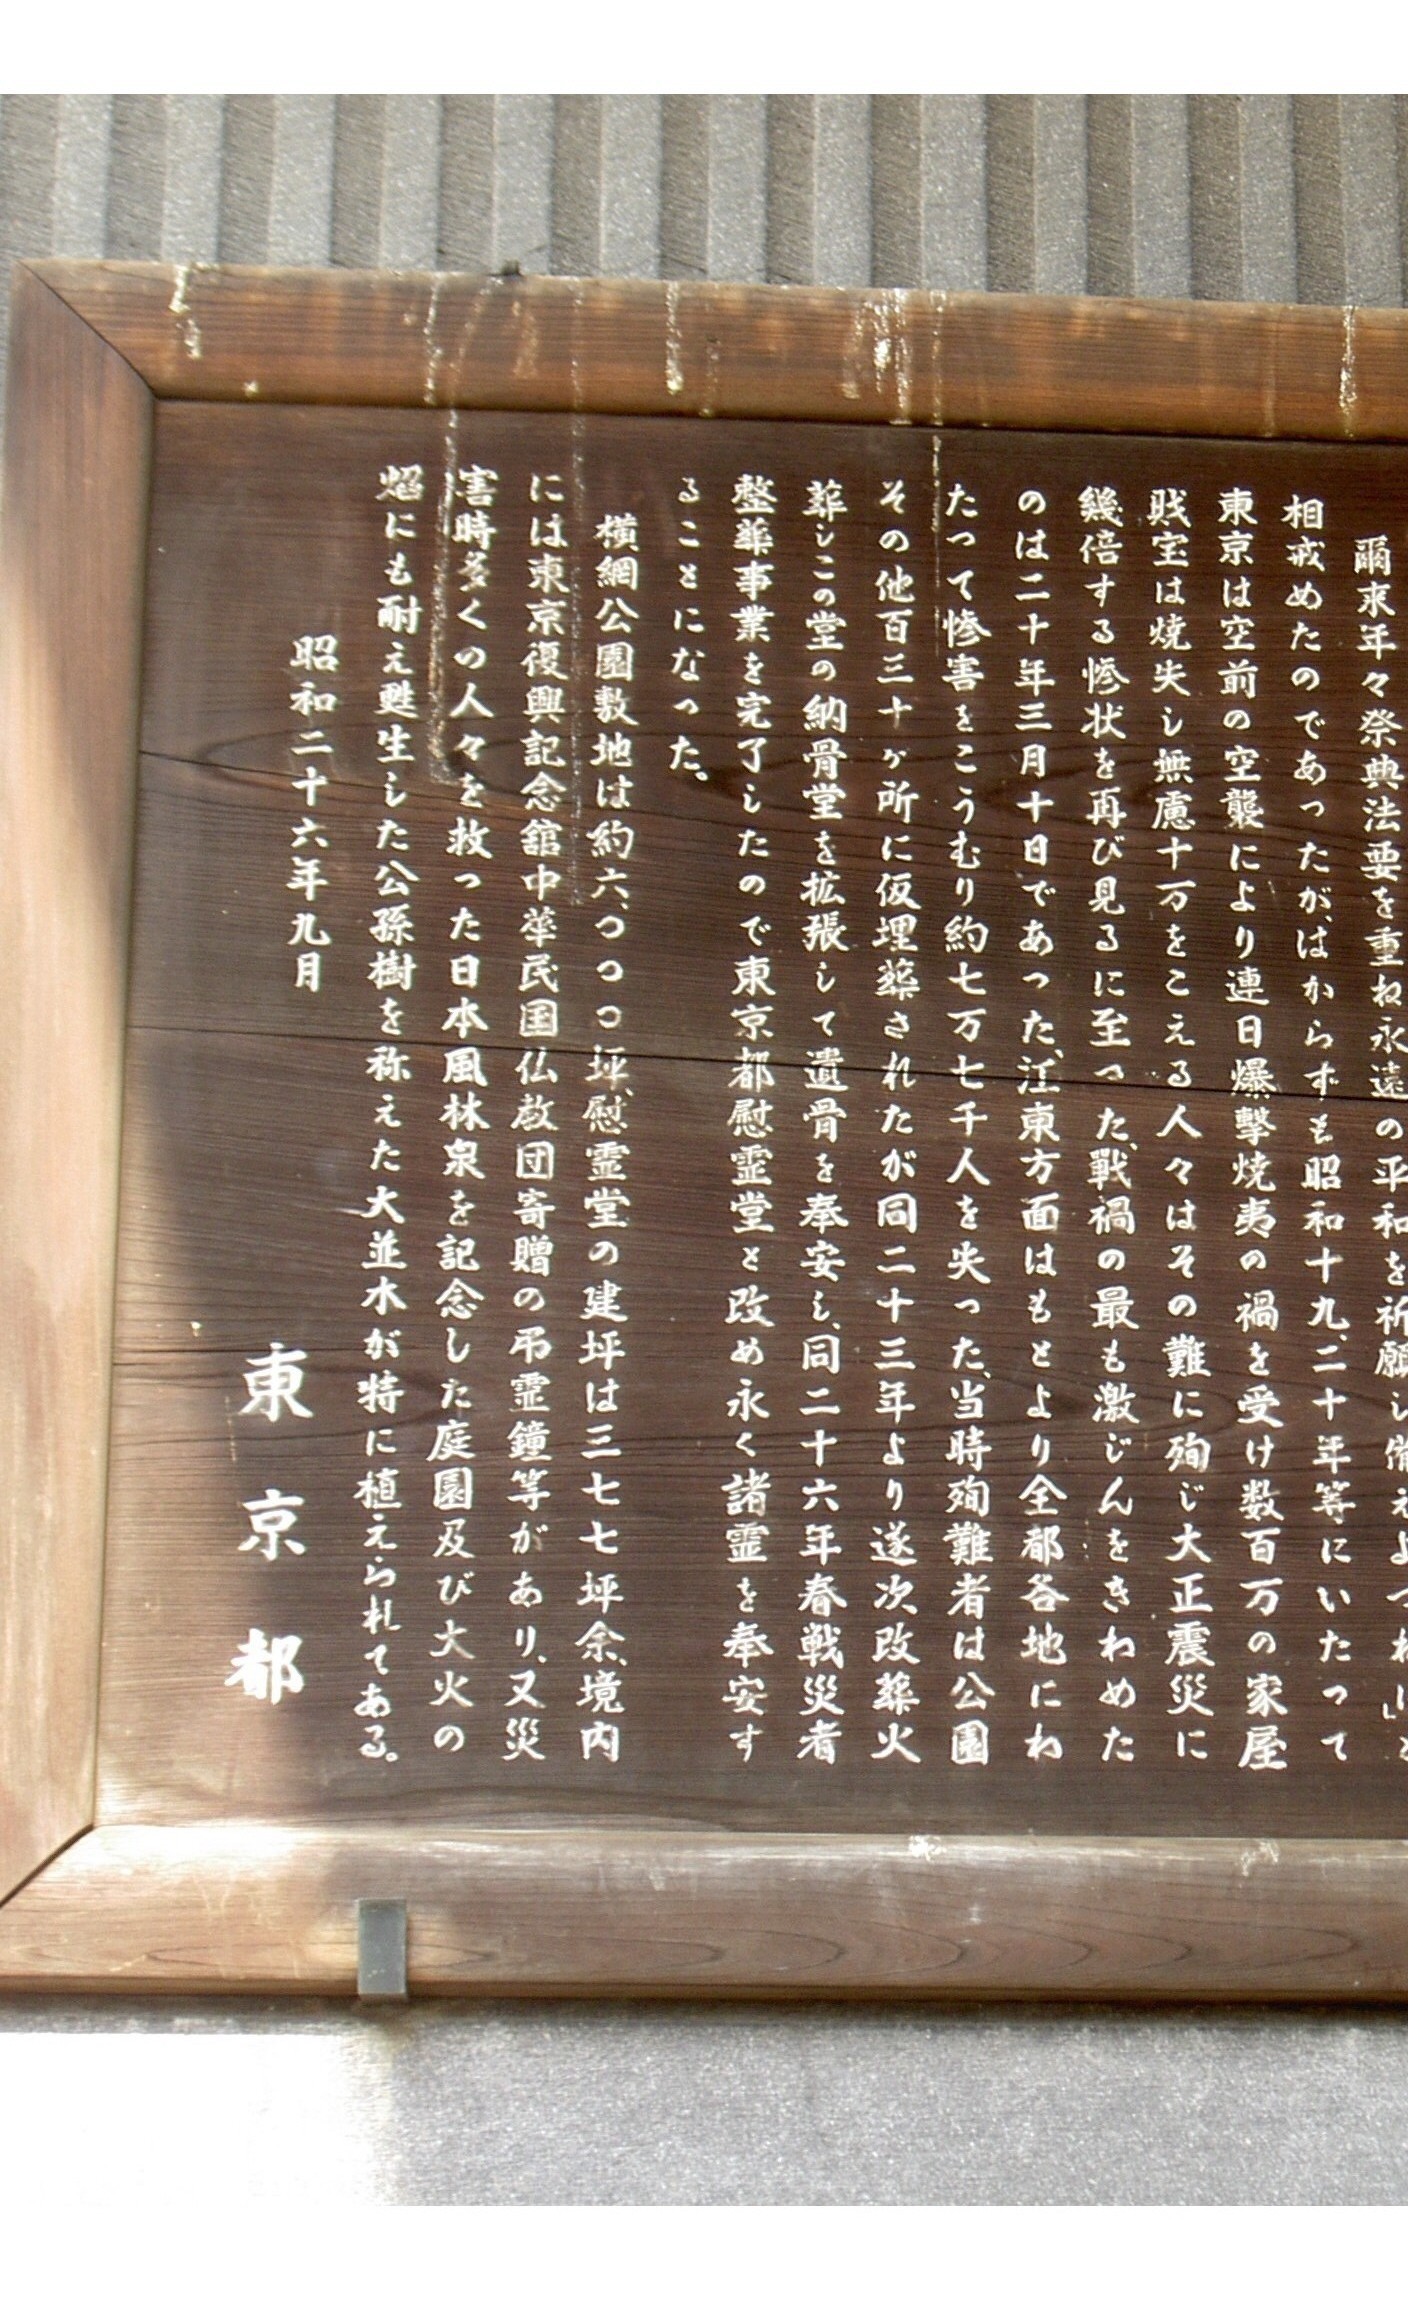 爾来年々祭典法要を重ね永遠の平和を祈願し備えよつねに」と
相戒めたのであつたが、はからずも昭和十九、二十年等にいたつて
東京は空前の空襲により連日爆撃焼夷の禍を受け数百万の家屋
財宝は焼失し無慮十万をこえる人々はその難に殉じ大正震災に
幾倍する惨状を再び見るに至つた、戦禍の最も激じんをきわめた
のは二十年三月十日であつた、江東方面はもとより全都各地にわ
たつて惨害をこうむり約七万七千人を失つた、当時殉難者は公園
その他百三十ヶ所に仮埋葬されたが同二十三年より逐次改葬火
葬しこの堂の納骨堂を拡張して遺骨を奉安し、同二十六年春戦災者
整葬事業を完了したので東京都慰霊堂と改め永く諸霊を奉安す
ることになつた。
横網公園敷地は約六、〇〇〇坪、慰霊堂の建坪は三七七坪余、境内
には東京復興記念舘中華民国仏教団寄贈の弔霊鐘等があり、又災
害時多くの人々を救つた日本風林泉を記念した庭園及び大火の
焰にも耐え甦生した公孫樹を称えた大並木が特に植えられてある。
昭和二十六年九月
東京都